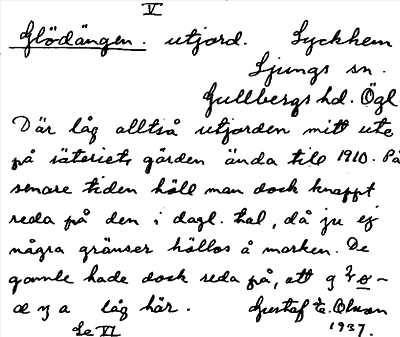 V
Glödängen. utjord. Lyckhem
Ljungs sn.
Gullbergs hd. Ögl.
Där låg alltså utjorden mitt ute
på säteriets gården ända till 1910. På
senare tiden höll man dock knappt
reda på den i dagl. tal, då ju ej
några gränser hållos å marken. De
gamle hade dock reda på, att
låg här. Gustaf E. Olsson
Se VI 1937.